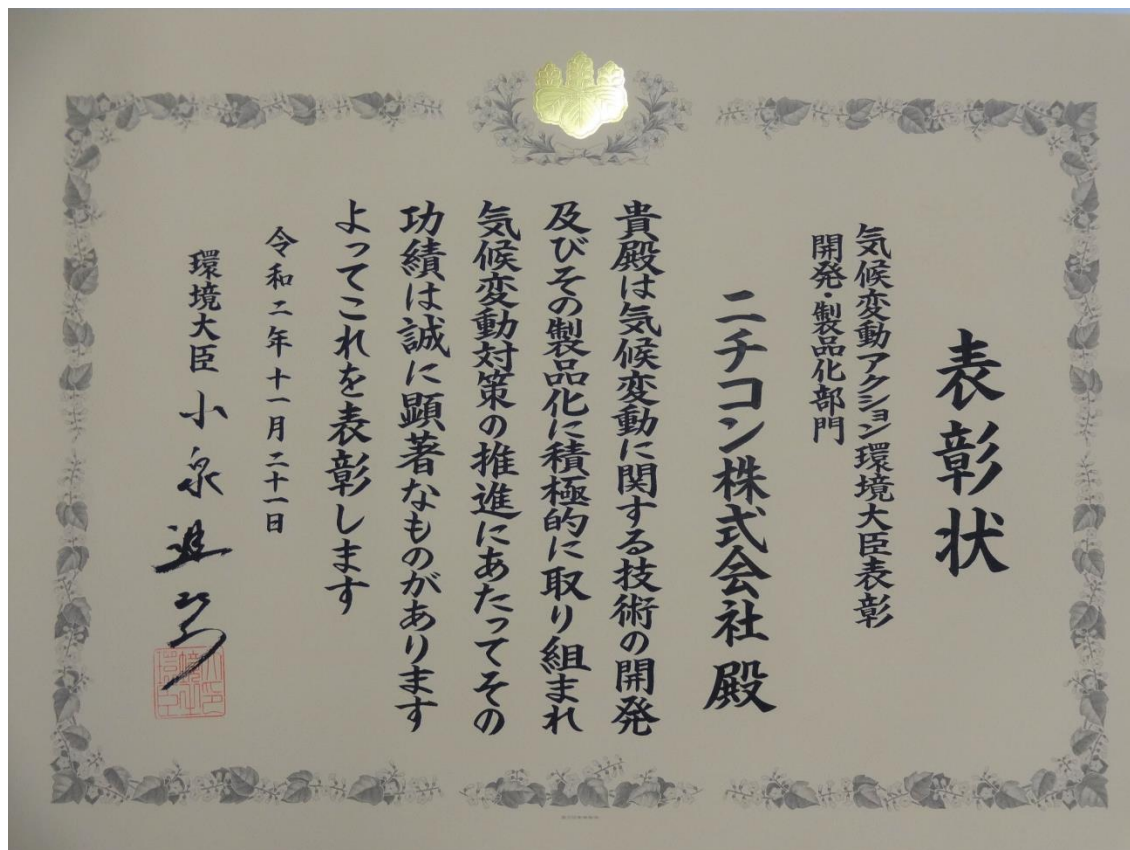 表彰状
気候変動アクション環境大臣表彰
開発・製品化部門
ニチコン株式会社 殿
貴殿は気候変動に関する技術の開発
及びその製品化に積極的に取り組まれ
気候変動対策の推進にあたってその
功績は誠に顕著なものがあります
よってこれを表彰します
令和二年十一月二十一日
環境大臣 小泉進次郎